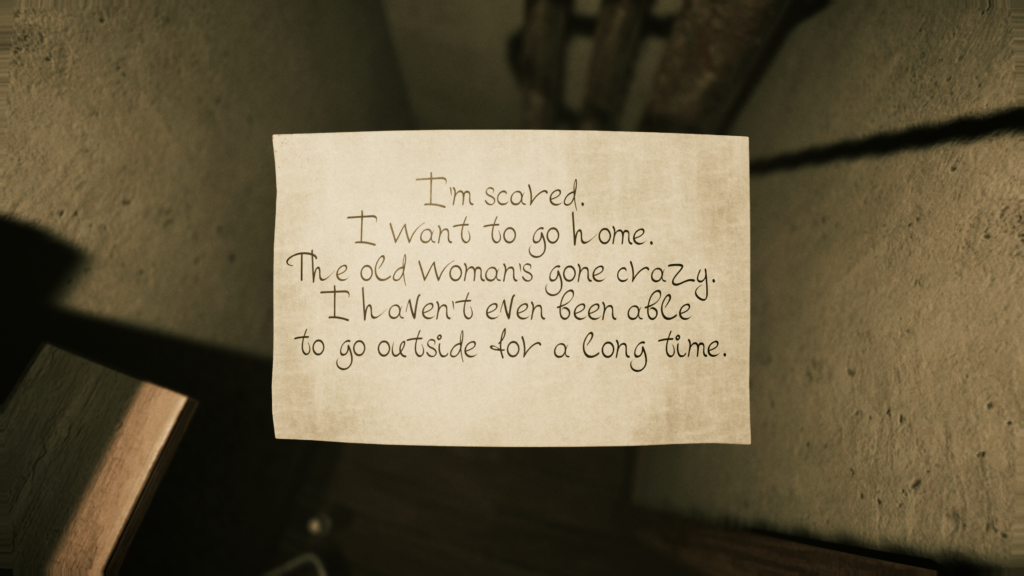 I'm scared.
I want to go home.
The old woman's gone crazy.
I haven't even been able
to go outside for a long time.